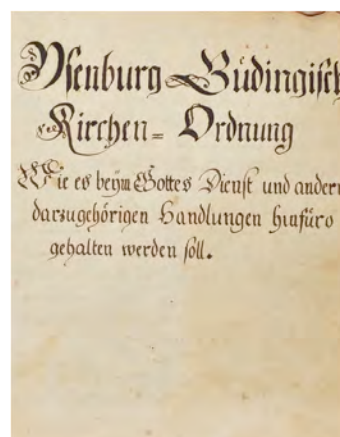 Ysenburg-Büdingisch
Kirchen= Ordnung
Wie es beym Gottes Dienst und andern
darzugehörigen Handlungen hinfüro
gehalten werden soll.